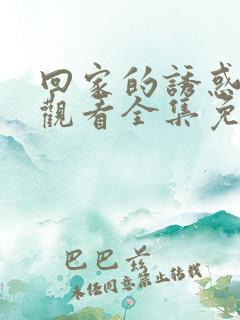 回家的誘惑
觀看全集免
巴巴爸
未經同意禁止轉載